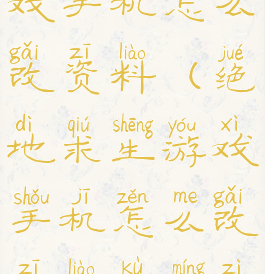 戏手机怎么
gǎi zī liào jué
改资料（绝
dì qiú shēng yóu xì
地求生游戏
shǒu jī zěn me gǎi
手机怎么改
zī liào kù míng zì